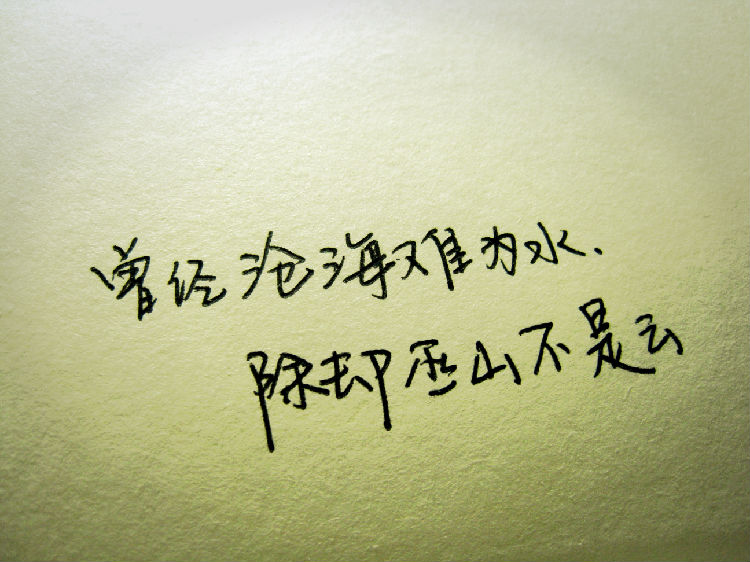 曾经沧海难为水.
除却巫山不是云